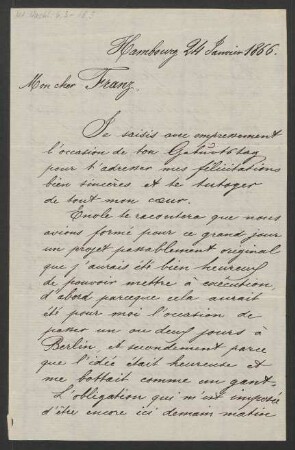 Hambourg 24 Janvier 1866.
Mon cher Franz.
Je saisis avec empressement
l'occasion de ton Geburtstag
pour t'adresser mes félicitations
bien sincères et te
de tout mon cœur.
te racontera que nous
avions formé pour ce grand jour
un projet passablement original
que j'aurais été bien heureux
de pouvoir mettre à exécution,
d'abord parceque cela aurait
été pour moi l'occasion de
passer un ou deux jours à
Berlin et secondement parce
que l'idée était heureuse et
me bottait comme un gant.
L'obligation qui m'est imposée
d'être encore ici demain matin